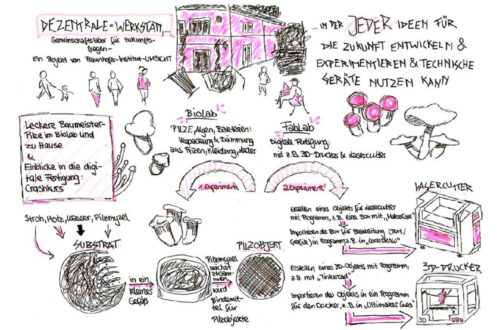 DEZENTRALE = WERKSTATT....
Gemeinschaftslabor für Zukunfts-
fragen -
Ein Projekt von Fraunhofer-Institut-UMSICHT
... IN DER JEDER IDEEN FÜR
DIE ZUKUNFT ENTWICKELN &
EXPERIMENTIEREN & TECHNISCHE
GERÄTE NUTZEN KANN
Leckere Baumeister-
Pilze im BioLab und
zu Hause
&
Einblicke in die digi-
tale Fertigung:
Crashkurs
BioLab
PILZE, Algen, Bakterien:
Verpackung & Dämmung
aus Pilzen, Kleidung, Leder
FabLab
Digitale Fertigung
mit z.B. 3D-Drucker & Lasercutter
1. Experiment
2. Experiment
Stroh, Holz, Wasser, Pilzmyzel
SUBSTRAT
in ein
kleines
Gefäß
Pilzmyzel
wächst
zusammen
wird
Bindemit-
tel für
Pilzobjekte
PILZOBJEKT
LASERCUTTER
Erstellen eines Objekts für Lasercutter
mit Programm, z.B. eine Box mit "MakerCase"
Importieren der Box für Bearbeitung (Text/
Grafik) in Programm z.B. in "CorelDraw"
Erstellen eines 3D-Objekts mit Programm,
z.B. mit "Tinkercad"
Importieren des Objekts in ein Programm
für den Drucker, z.B. in "Ultimaker Cura"
3D-DRUCKER